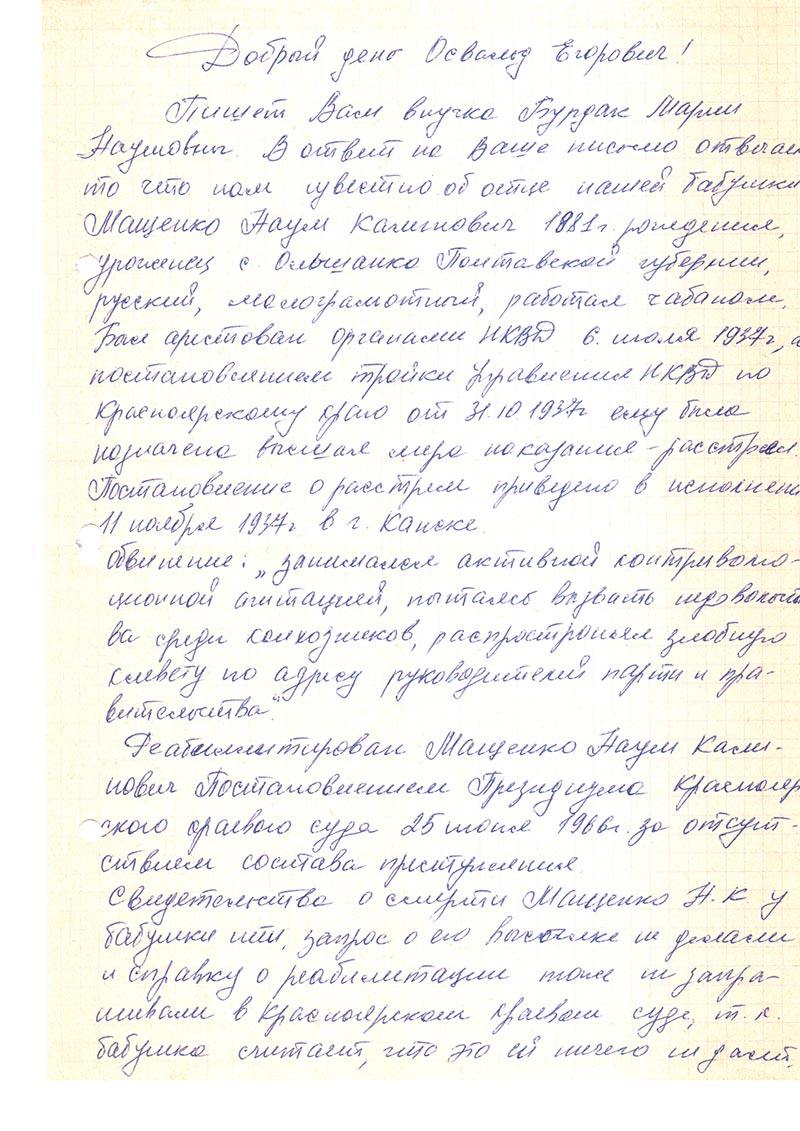 Добрый день Освальд Егорович!
Пишет Вам внучка Бурдак Марии
Наумовны. В ответ на Ваше письмо отвечаем
то что нам известно об отце нашей бабушки
Мащенко Наум Калинович 1881г. рождения,
уроженец с. Ольшанко Полтавской губернии,
русский, малограмотный, работал чабаном.
Был арестован органами НКВД 6. июля 1937г, а
постановлением тройки Управления НКВД по
Красноярскому краю от 31.10 1937г ему была
назначена высшая мера наказания - расстрел.
Постановление о расстреле приведено в исполнени
11 ноября 1937г. в г. Канске.
Обвинение: „занимался активной контрриволю-
ционной агитацией, пытаясь вызвать недовольст
ва среди колхозников, распространял злобную
клевету по адресу руководителей парти и пра-
вительства".
Реабилитирован Мащенко Наум Кали-
нович Постановлением Президиума Краснояр
ского краевого суда 25 июня 1966г. за отсут-
ствием состава преступления.
Свидетельства о смерти Мащенко Н.К у
бабушки нет, запрос о его высылке не делали
и справку о реабилитации тоже не запра-
шивали в Красноярском краевом суде, т.к.
бабушка считает, что это ей ничего не даст.